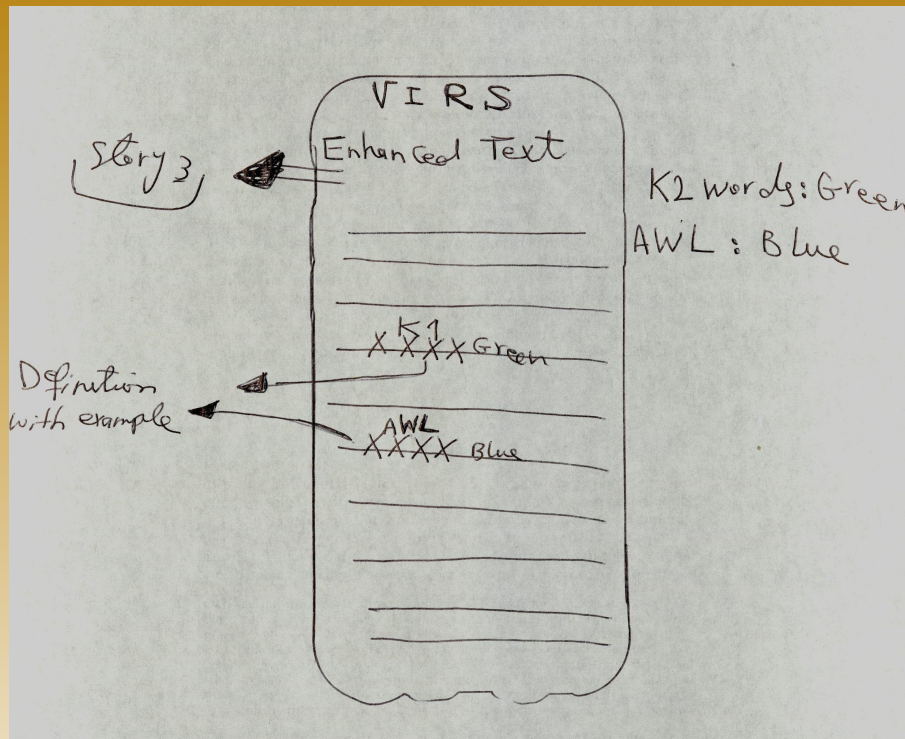 VIRS
Enhanced Text
Story 3
K2 words: Green
AWL: Blue
K1
XXXX Green
Definition
with example
AWL
XXXX Blue